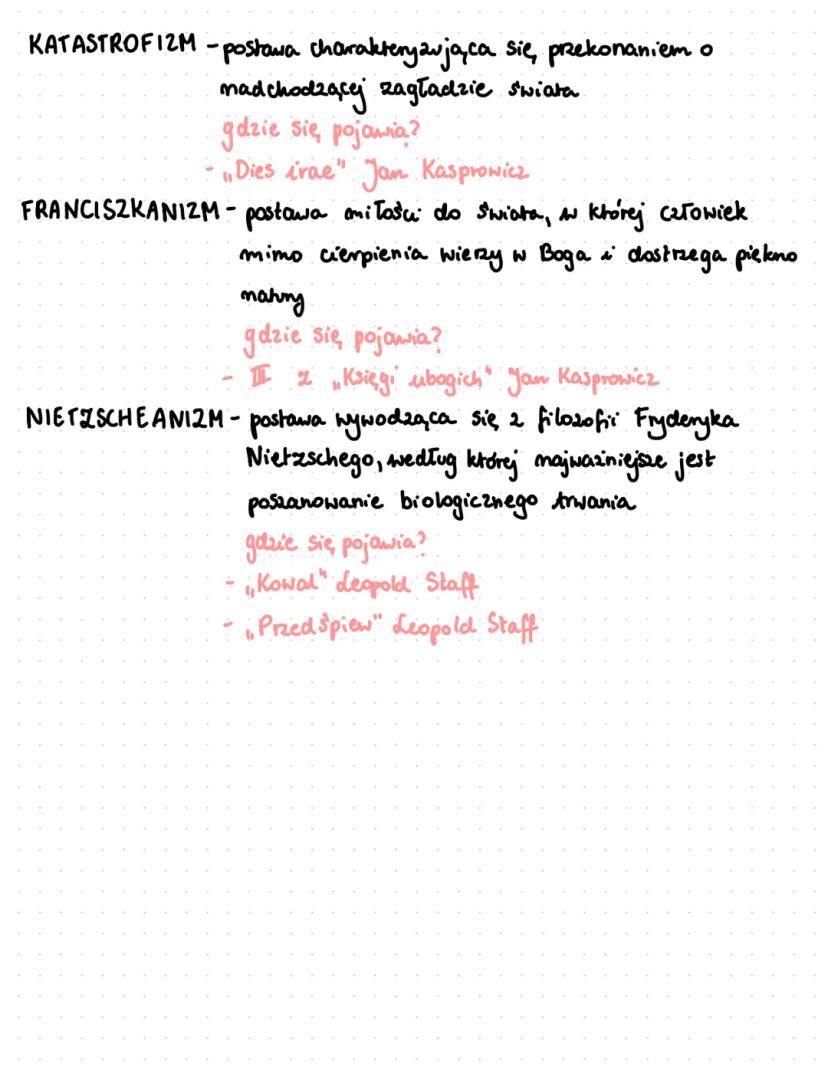 KATASTROFIZM - postawa charakteryzująca się przekonaniem o
nadchodzącej zagładzie świata
gdzie się pojawia?
- "Dies irae" Jan Kasprowicz
FRANCISZKANIZM - postawa miłości do świata, w której człowiek
mimo cierpienia wierzy w Boga i dostrzega piękno
natury
gdzie się pojawia?
- III z "Księgi ubogich" Jan Kasprowicz
NIETZSCHEANIZM - postawa wywodząca się z filozofii Fryderyka
Nietzschego, według której najważniejsze jest
poszanowanie biologicznego trwania
gdzie się pojawia?
- "Kowal" Leopold Staff
- "Przedśpiew" Leopold Staff